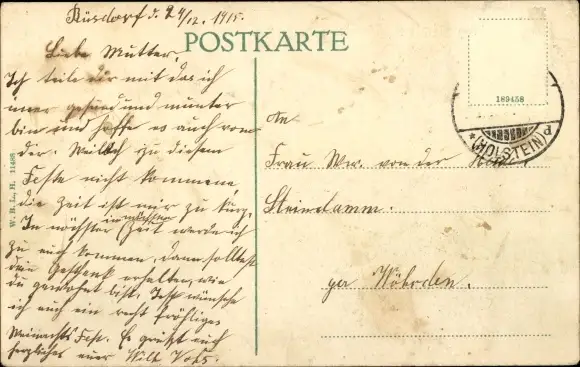 Rüsdorf d. 24/12. 1915.
POSTKARTE
Liebe Mutter,
Ich teile dir mit das ich
immer gesund und munter
bin und hoffe es auch von
dir. zu diesem
Feste nicht kommen,
die Zeit ist mir zu kurz.
In nächster Zeit werde ich
zu euch kommen, dann sollst
dein Geschenk erhalten, wie
du gewohnt bist. wünsche
ich euch ein recht fröhliges
Weinachts Fest. Es grüßt euch
herzliches euer Wilh. Voß.
W. B. L., H. 11488
189458
*(HOLSTEIN)a
An
Frau Ww. von der
Steindamm.
Wöhrden.